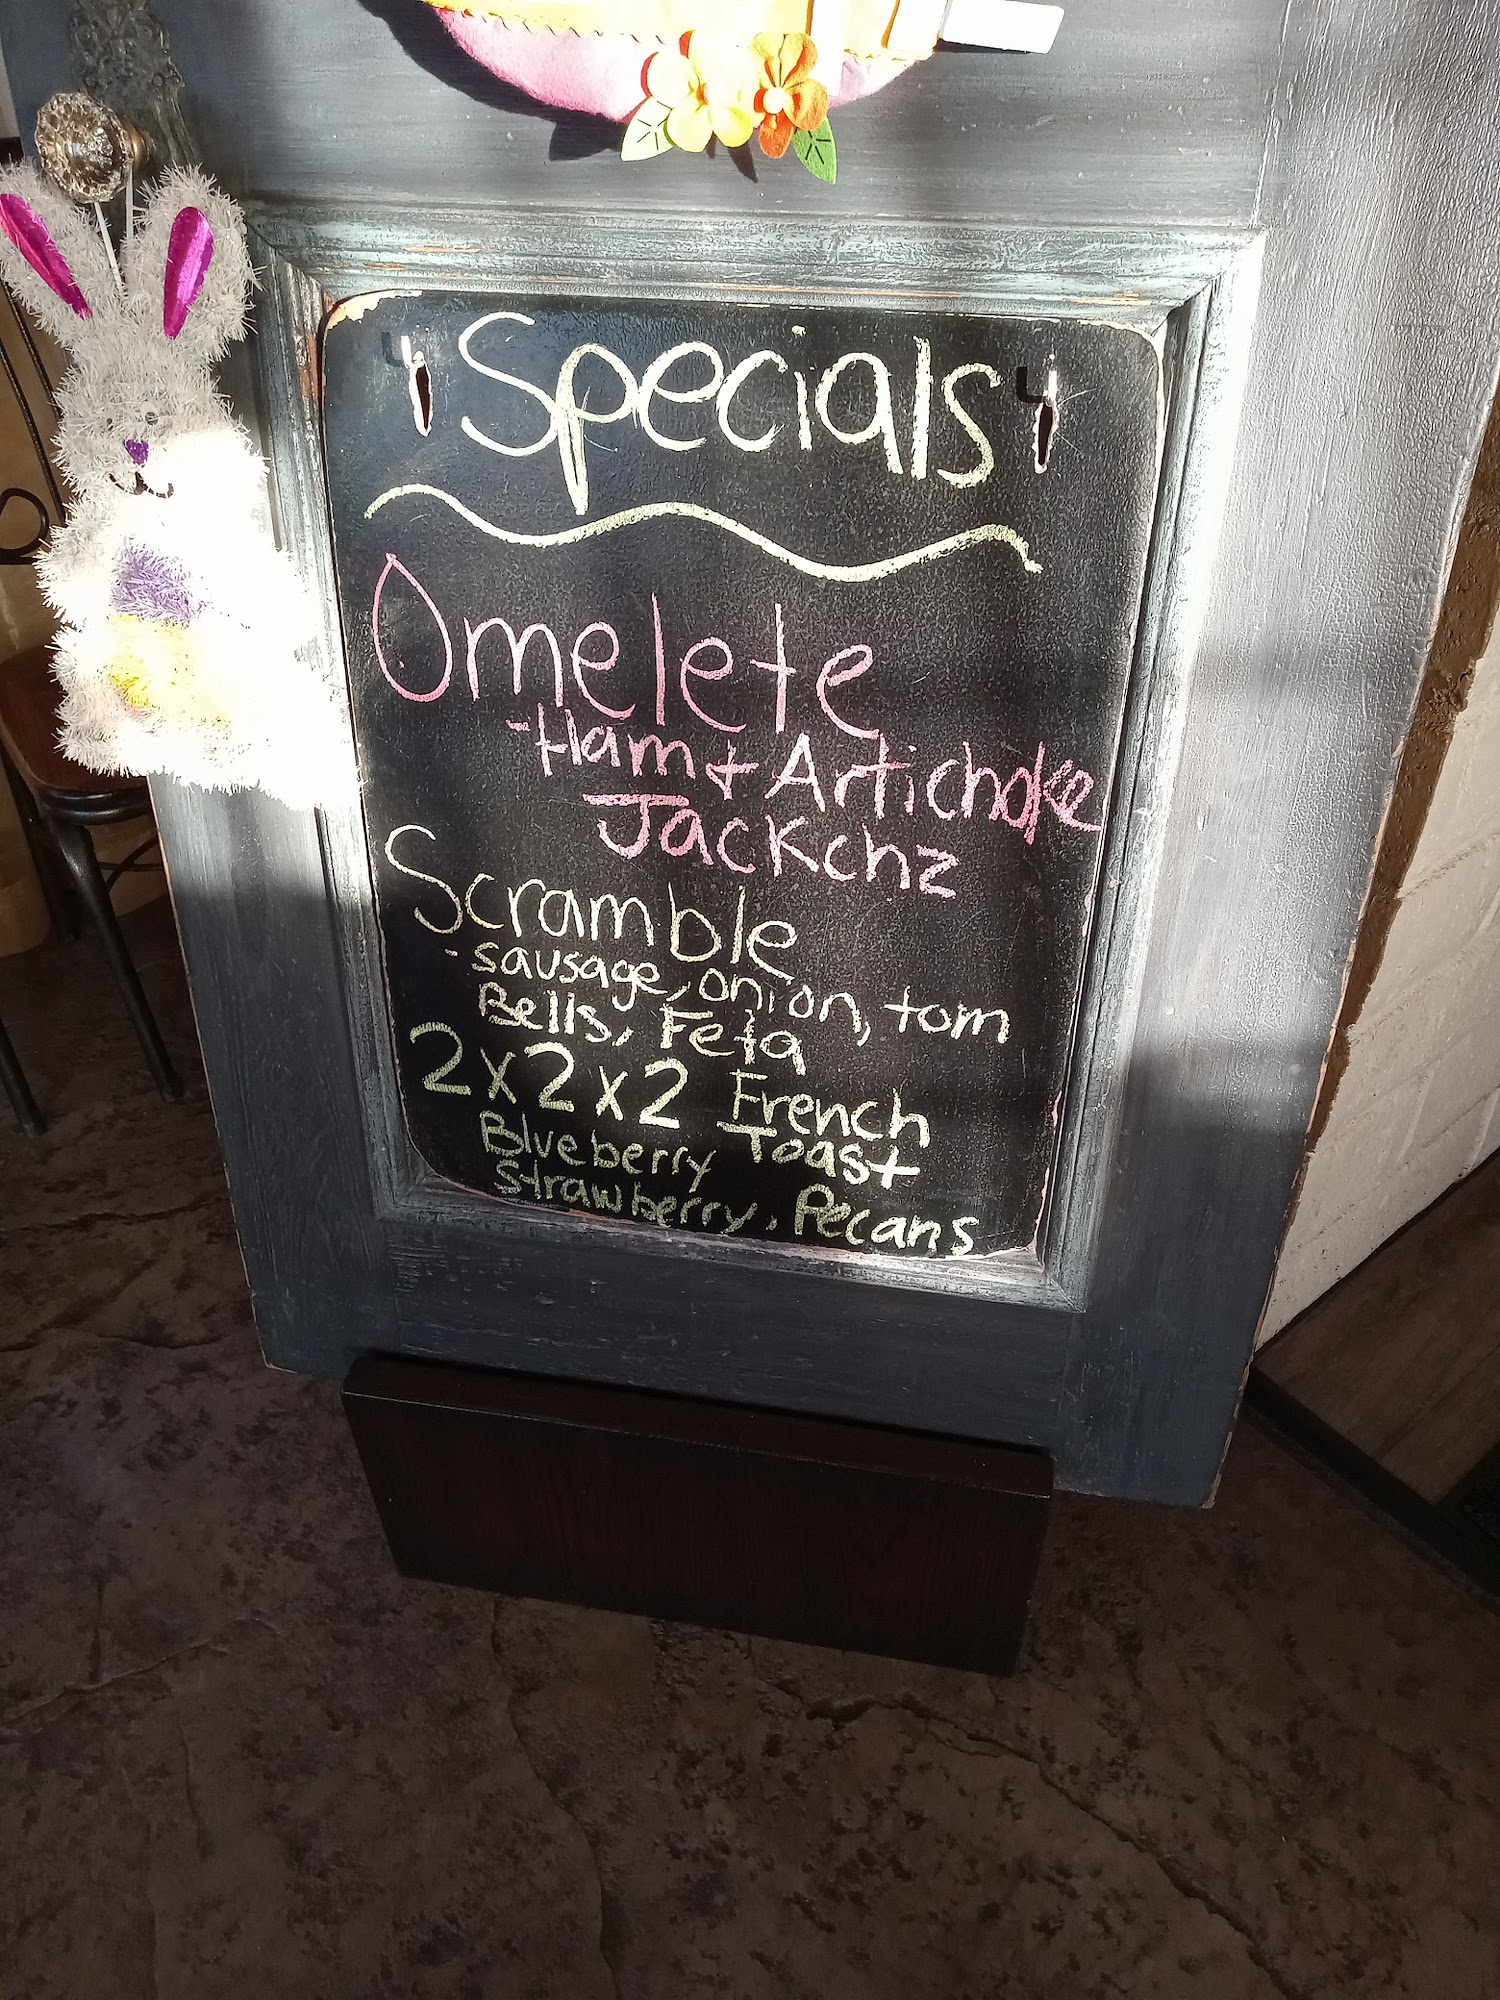 Specials
Omelete
-Ham + Artichoke
Jackchz
Scramble
-sausage, onion, tom
Bells, Feta
2x2x2 French
Toast
Blueberry
strawberry, Pecans